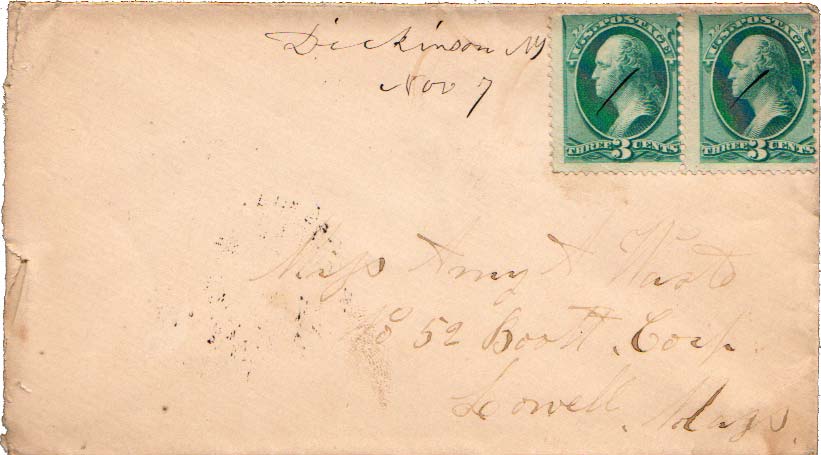 Dickinson NY
Nov 7
U.S. POSTAGE
THREE 3 CENTS
U.S. POSTAGE
THREE 3 CENTS
Miss Amy A
No 52 Boott Corp.
Lowell Mass.